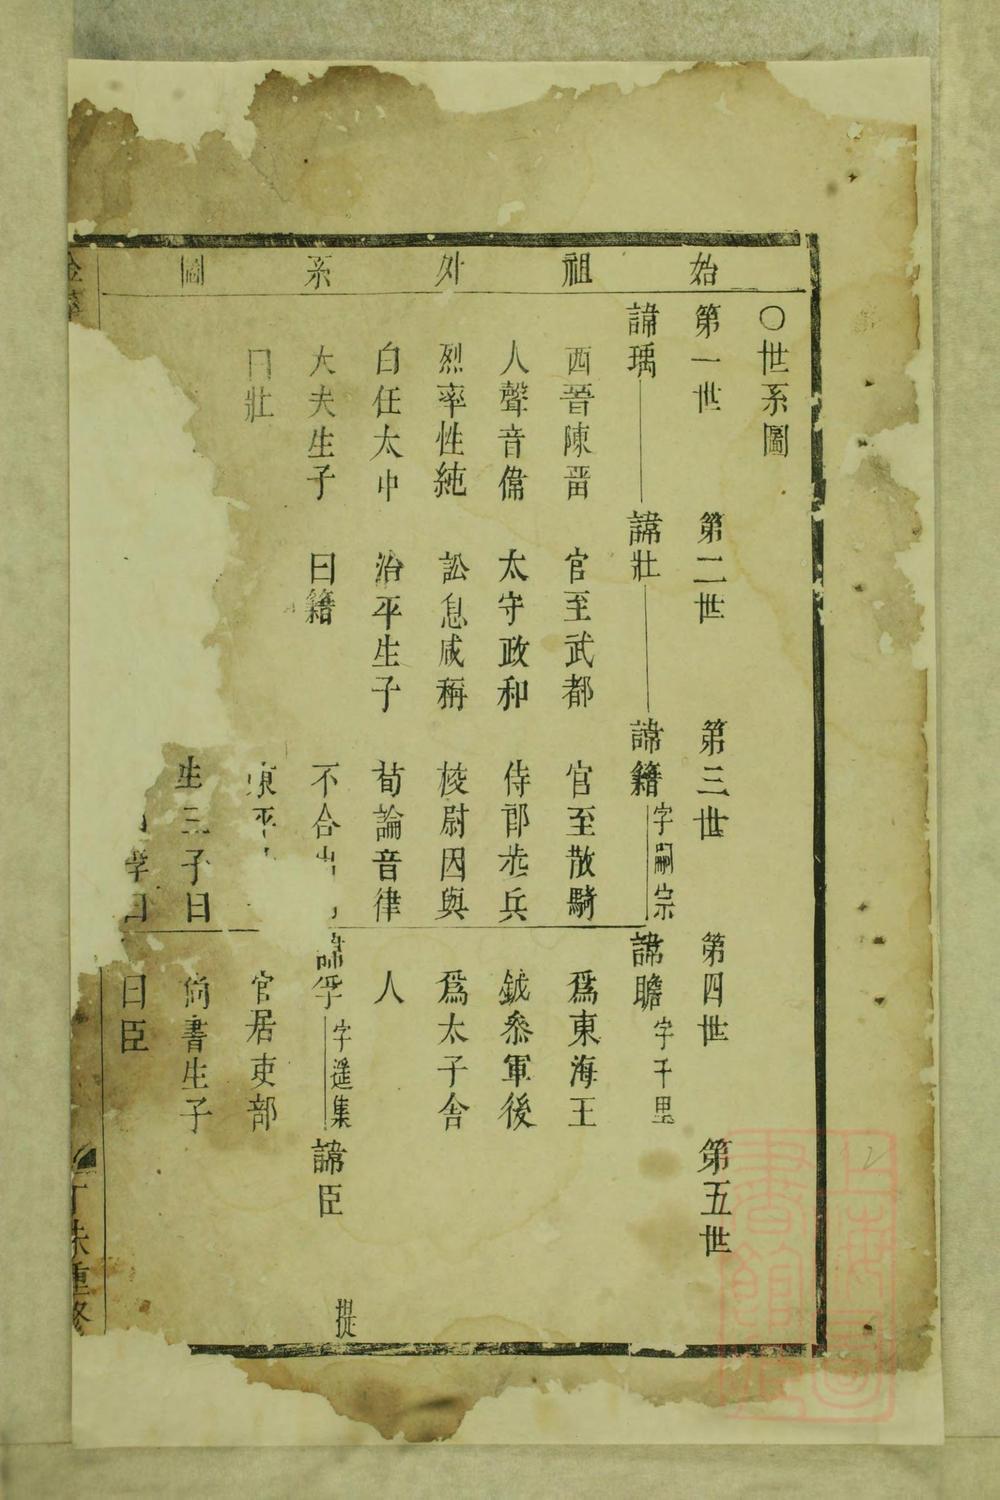 始祖外系圖
〇世系圖
第一世
第二世
第三世
第四世
第五世
諱瑀
諱壯
諱籍 字嗣宗
諱瞻 字千里
西晉陳畱
人聲音偉
烈率性純
白任太中
大夫生子
曰壯
官至武都
太守政和
訟息咸稱
治平生子
曰籍
官至散騎
侍郎恭兵
校尉因與
荀論音律
不合出
東平
生三子曰
孚曰
爲東海王
鉞叅軍後
爲太子舍
人
諱孚 字遥集
官居吏部
尙書生子
曰臣
諱臣
提
丁未重修
上海圖書館藏